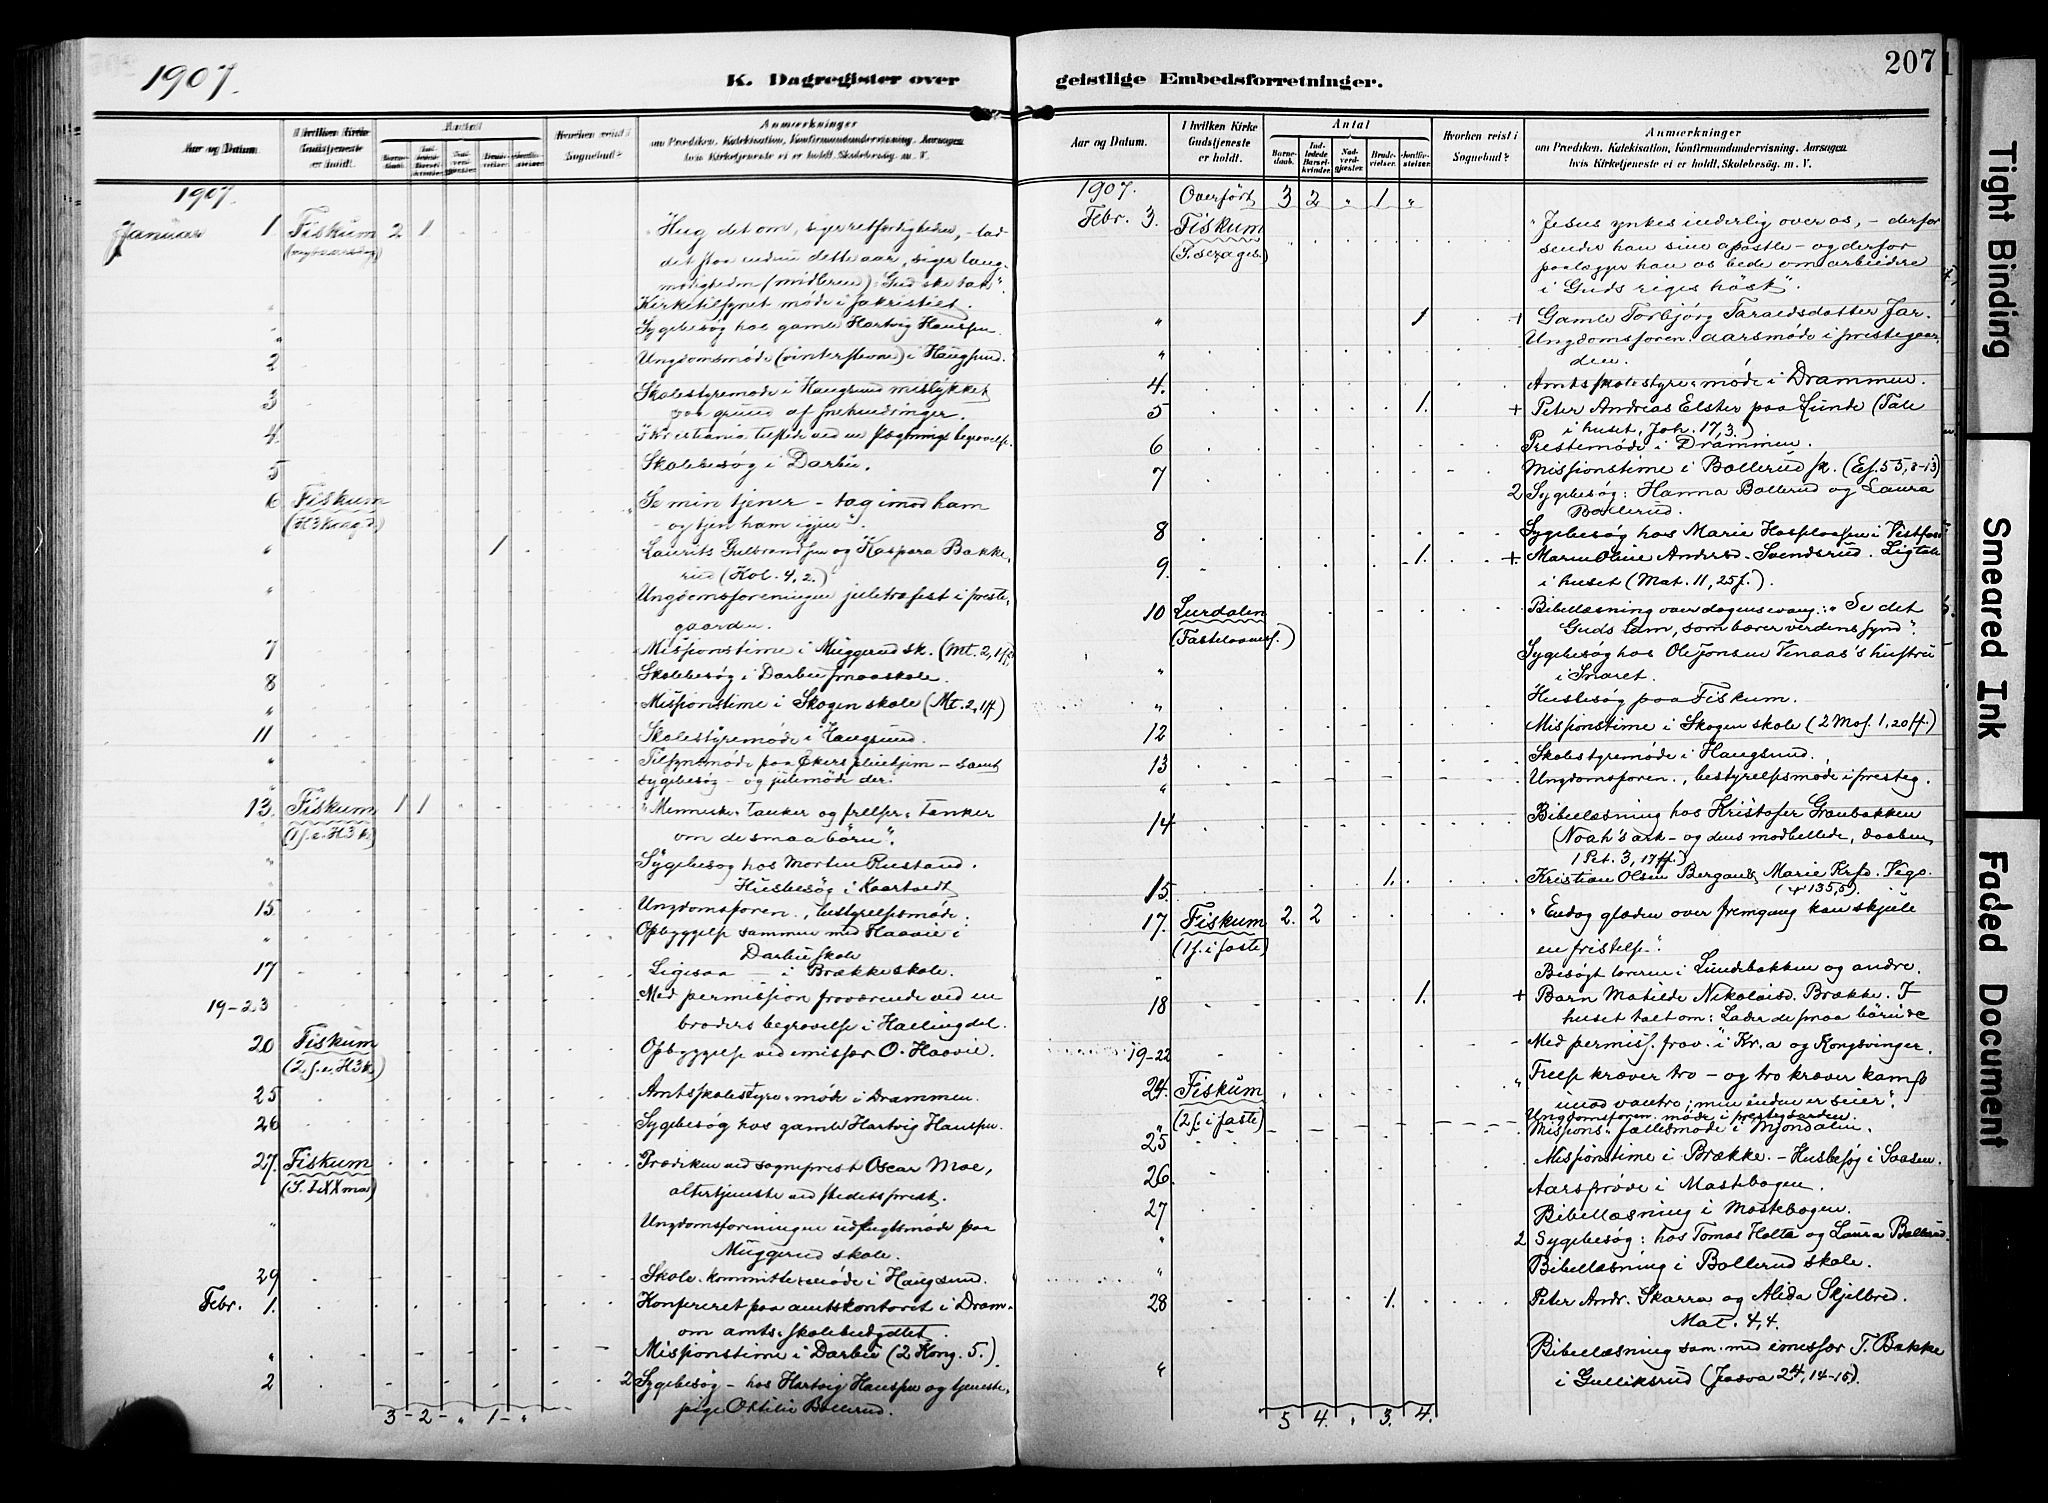 1907.
K. Dagregister over
Aar og Datum.
I hvilken Kirke Gudstjeneste er holdt.
Antal
Hvorhen reist i Sognebud?
Anmærkninger
om Prædiken, Katekisation, Konfirmandundervisning, Aarsagen
hvis Kirketjeneste ei er holdt, Skolebesøg m. V.
1907.
Januar 1 Fiskum 2 1 "Hug det om, siger retfærdigheden, - lad
(nytaarsdag) det staa endnu dette aar, siger lang-
modigheden (midleren): Gud ske tak".
" Kirketilsynet møde i sakristiet.
" Sygebesøg hos gamle Hartvig Hanssen.
2 Ungdomsmøde (vinterstevne) i Haugsund.
3 Skolestyremøde i Haugsund mislykket
paa grund af forhindringer.
4. I Kristiania tilstede ved en slægtnings begravelse.
5 Skolebesøg i Darbu.
6. Fiskum "Se min tjener - tag imod ham
(H3kong.d.) - og tjen ham igjen".
" 1 Laurits Gulbrandsen og Kaspara Bakke-
rud (Kol. 4, 2.)
" Ungdomsforeningen juletræfest i preste-
gaarden.
7 Missionstime i Muggerud sk. (Mt. 2, 1ff)
8 Skolebesøg i Darbu smaaskole.
" Missionstime i Skogen skole (Mt. 2, 1ff)
11 Skolestyremøde i Haugsund.
" Tilsynsmøde paa Ekers pleiehjem - samt
" sygebesøg - og julemøde der.
13. Fiskum 1 1 "Menneske-tanker og frelser-tanker
(1 s. e. H3k) om de smaa børn".
" Sygebesøg hos Morten Rustand.
" Husbesøg i Kaartvedt
15 Ungdomsforen., bestyrelsesmøde.
" Opbyggelse sammen med Haavie i
Darbu skole
17 Ligesaa — i Brække skole.
19-23 Med permission fraværende ved en
broders begravelse i Hallingdal.
20 Fiskum Opbyggelse ved emissær O. Haavie.
(2 s. e. H3k)
25 Amtsskolestyre-møde i Drammen.
26 Sygebesøg hos gamle Hartvig Hanssen.
27. Fiskum Prædiken ved sogneprest Oscar Moe,
(S. LXXma) altertjeneste ved stedets prest.
" Ungdomsforeningen udflugtsmøde paa
Muggerud skole.
29 Skole-kommitte-møde i Haugsund.
Febr. 1. Konfereret paa amtskontoret i Dram-
om amts-skolebudgettet.
" Missionstime i Darbu (2 Kong. 5.)
2 2 Sygebesøg - hos Hartvig Hanssen og tjeneste-
pige Othilie Bollerud.
3 - 2 - " 1 - "
207
geistlige Embedsforretninger.
Aar og Datum.
I hvilken Kirke Gudstjeneste er holdt.
Antal
Barne-daab. Ind-ledede Barsel-kvinder. Nad-verd-gjester. Brude-vielser. Jordfæ-stelser.
Hvorhen reist i Sognebud?
Anmærkninger
om Prædiken, Katekisation, Konfirmandundervisning, Aarsagen
hvis Kirketjeneste ei er holdt, Skolebesøg m. V.
1907. Overført 3 2 " 1 "
Febr. 3. Fiskum "Jesus ynkes inderlig over os, - derfor
(S. sexages.) sender han sine apostle - og derfor
paalægger han os bede om arbeidere
i Guds riges høst".
" 1 + Gamle Torbjørg Taraldsdatter Jar.
" Ungdomsforen. aarsmøde i prestegaar-
den.
4. Amtsskolestyre-møde i Drammen.
5 1. + Peter Andreas Elster paa Lunde (Tale
i huset, Joh. 17, 3.)
6 Prestemøde i Drammen.
7 Missionstime i Bollerud sk. (Es. 55, 8-13)
2 Sygebesøg: Hanna Bollerud og Laura
Bollerud.
8 Sygebesøg hos Marie Hosplassen i Vestfos
9. 1. + Maren Oline Andersd. Svendsrud. Ligtale
i huset (Mat. 11, 25f.).
10 Lurdalen Bibellæsning over dagens evang.: "Se det
(Fastelavnss.) Guds lam, som bærer verdens synd".
" Sygebesøg hos Ole Jonsen Venaas's hustru
i Snaret.
" Husbesøg paa Fiskum.
12 Missionstime i Skogen skole (2 Mos. 1, 20 ff.)
13 Skolestyremøde i Haugsund.
" Ungdomsforen., bestyrelsesmøde i presteg.
14 Bibellæsning hos Kristofer Granbakken
(Noah's ark - og dens modbillede, daaben
1 Pet. 3, 17 ff.)
15. 1. Kristian Olsen Bergan & Marie Krfd. Vego.
(ψ 135, 5).
17. Fiskum 2. 2 "Endog glæden over fremgang kan skjule
(1 s. i faste) en fristelse".
" Besøgt læreren i Lundebakken og andre.
18 1. + Barn Matilde Nikolaisd. Brække. I
huset talt om: Lader de smaa børn &c
19-22 Med permiss. frav. i Kr.a og Kongsvinger.
24. Fiskum "Frelse kræver tro - og tro kræver kamp
(2 s. i faste) imod vantro; men enden er seier".
" Ungdomsforen. møde i prestegaarden.
25 Missions-fællesmøde i Mjøndalen.
" Missionstime i Brække. - Husbesøg i Saasen.
26. Aarsprøve i Mastebogen.
27 Bibellæsning i Mastebogen.
" 2 Sygebesøg: hos Tomas Holta og Laura Bollerud.
" Bibellæsning i Bollerud skole.
28 1. Peter Andr. Skarra og Alida Skjelbred.
Mat. 4, 4.
" Bibellæsning sam. med emissær T. Bakke
i Gulliksrud (Josva 24, 14-15).
5 4. " 3. 4.
Tight Binding
Smeared Ink
Faded Document